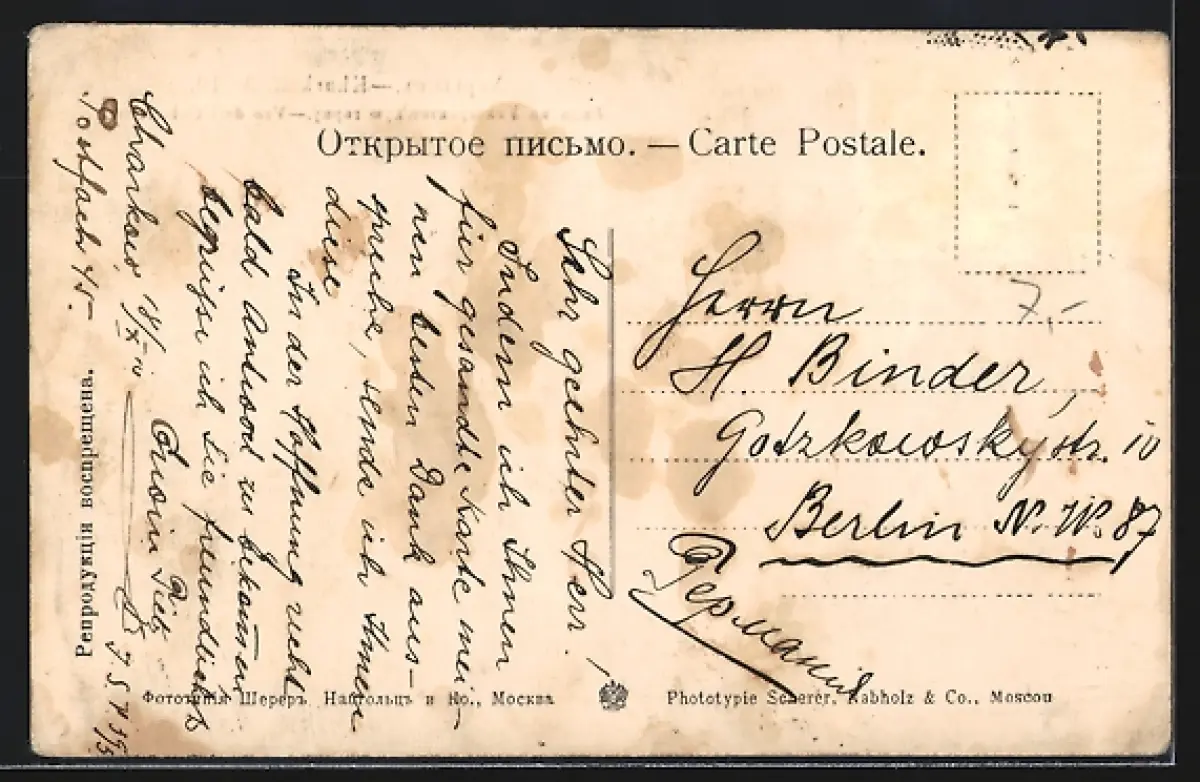 Открытое письмо. — Carte Postale.
Sehr geehrter Herr!
Indem ich Ihnen
für gesandte Karte mei-
nen besten Dank aus-
spreche, sende ich Ihnen
diese
In der Hoffnung recht
bald Antwort zu bekommen
begrüsse ich Sie freundlichst
Erwin
Charkow, 18/X
Postfach 45.
Herrn
H. Binder,
Gotzkowskystr. 10
Berlin N.W. 87
Германия
7,-
Репродукція воспрещена.
Фототипія Шереръ, Набгольцъ и Ко., Москва
Phototypie Scherer, Nabholz & Co., Moscou